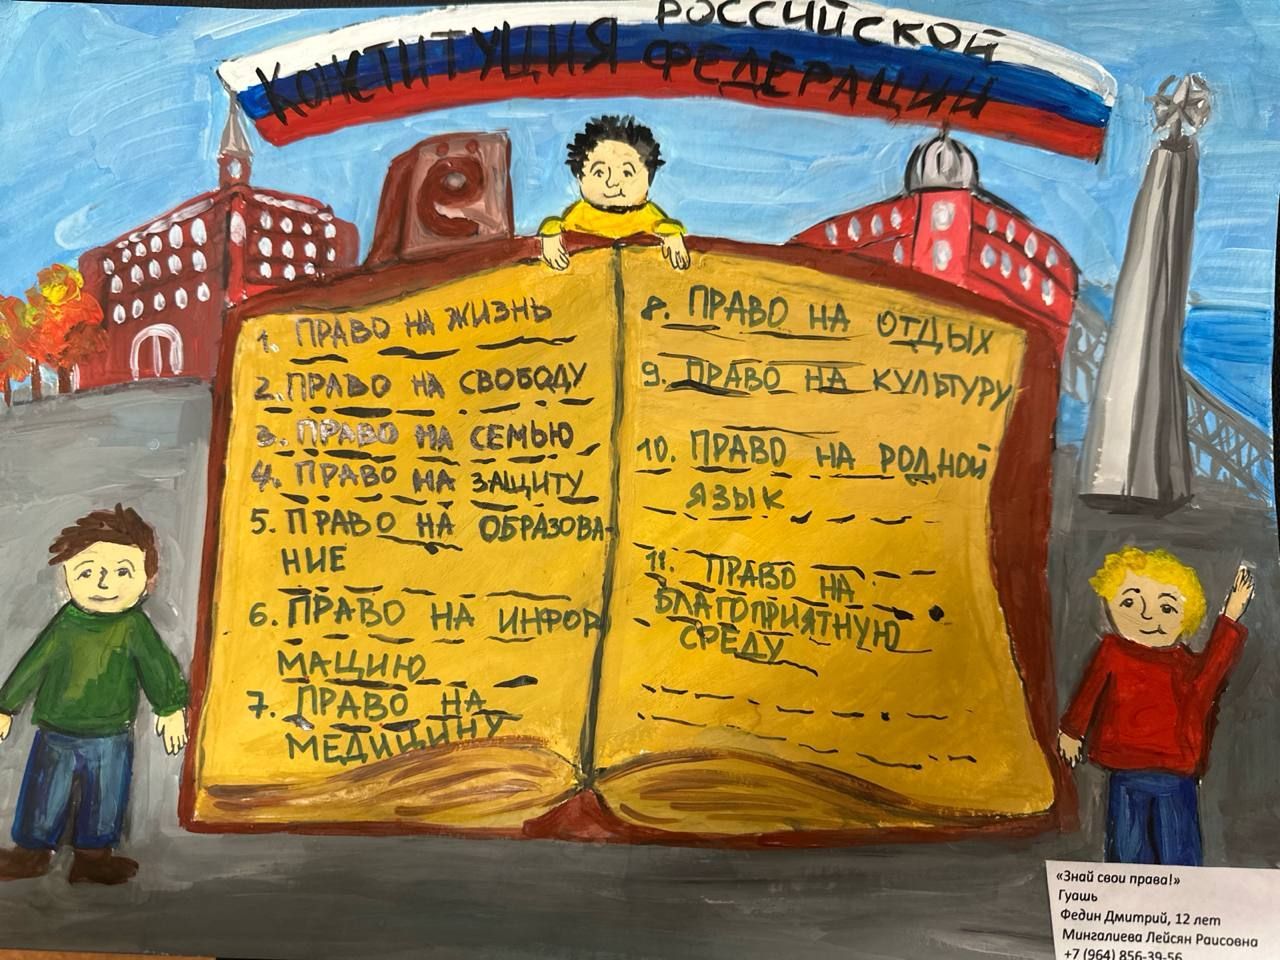 РОССИЙСКОЙ
КОНСТИТУЦИЯ ФЕДЕРАЦИИ
Ё
1. ПРАВО НА ЖИЗНЬ
2. ПРАВО НА СВОБОДУ
3. ПРАВО НА СЕМЬЮ
4. ПРАВО НА ЗАЩИТУ
5. ПРАВО НА ОБРАЗОВА-
НИЕ
6. ПРАВО НА ИНФОР
МАЦИЮ
7. ПРАВО НА
МЕДИЦИНУ
8. ПРАВО НА ОТДЫХ
9. ПРАВО НА КУЛЬТУРУ
10. ПРАВО НА РОДНОЙ
ЯЗЫК
11. ПРАВО НА
БЛАГОПРИЯТНУЮ
СРЕДУ
«Знай свои права!»
Гуашь
Федин Дмитрий, 12 лет
Мингалиева Лейсян Раисовна
+7 (964) 856-39-56